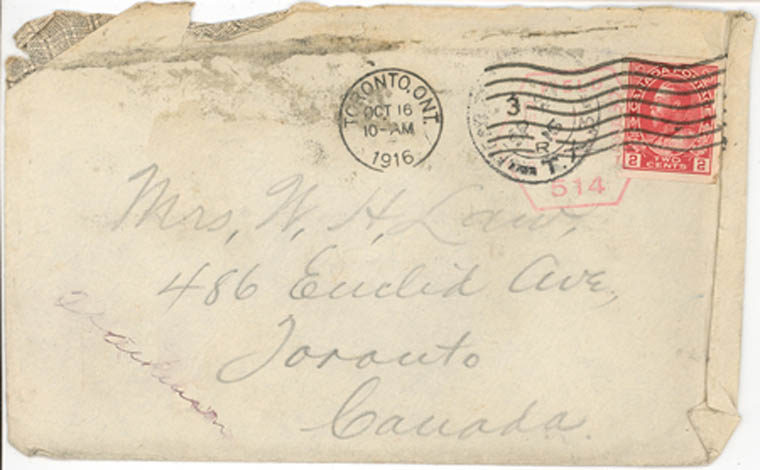 TORONTO, ONT.
OCT 16
10-AM
1916
3
R
T.
CANADA POSTAGE
2 TWO CENTS 2
514
Mrs, W. H. Law,
486 Euclid Ave,
Toronto
Canada